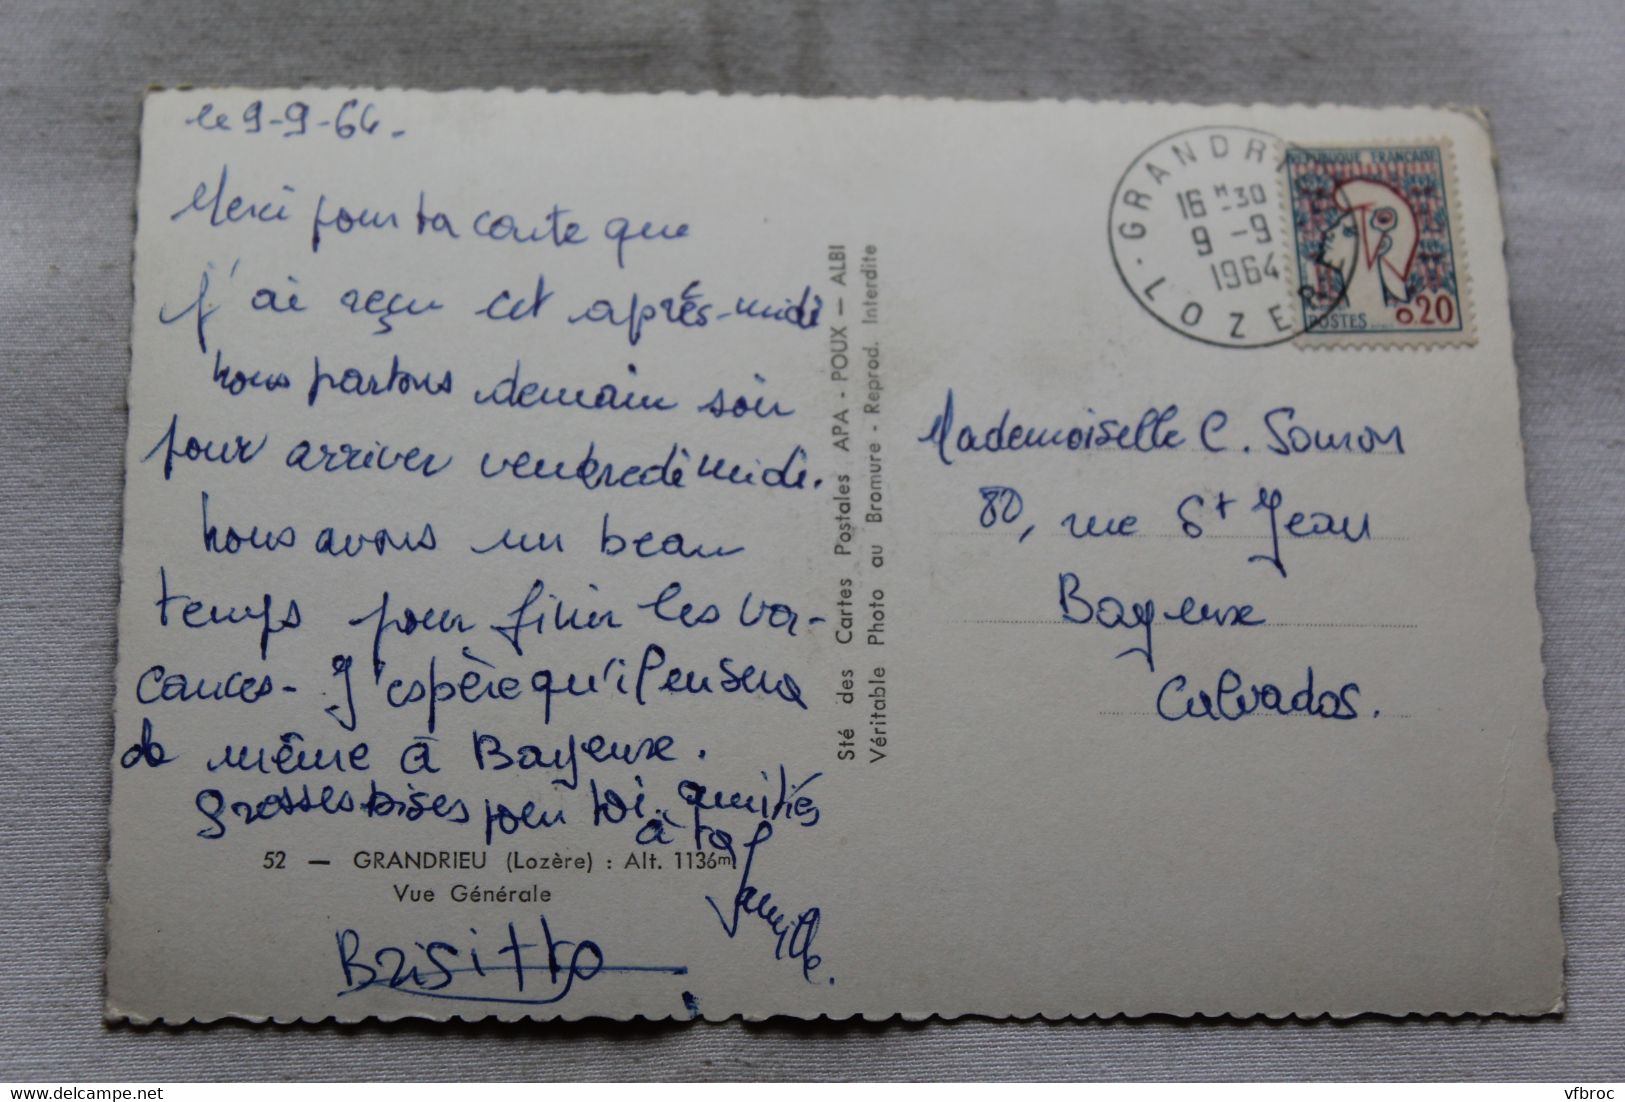 le 9-9-64.
Merci pour ta carte que
j'ai reçu cet après-midi
nous partons demain soir
pour arriver vendredi midi.
nous avons un beau
temps pour finir les va-
cances - J'espère qu'il en sera
de même à Bayeux.
grosses bises pour toi. amitiés
à ta
famille.
52 — GRANDRIEU (Lozère) : Alt. 1136m
Vue Générale
Sté des Cartes Postales APA - POUX — ALBI
Véritable Photo au Bromure - Reprod. Interdite
GRANDRIEU
16 H 30
9 - 9
1964
LOZERE
REPUBLIQUE FRANÇAISE
POSTES
0,20
Mademoiselle C.
80, rue St Jean
Bayeux
Calvados.
vfbroc